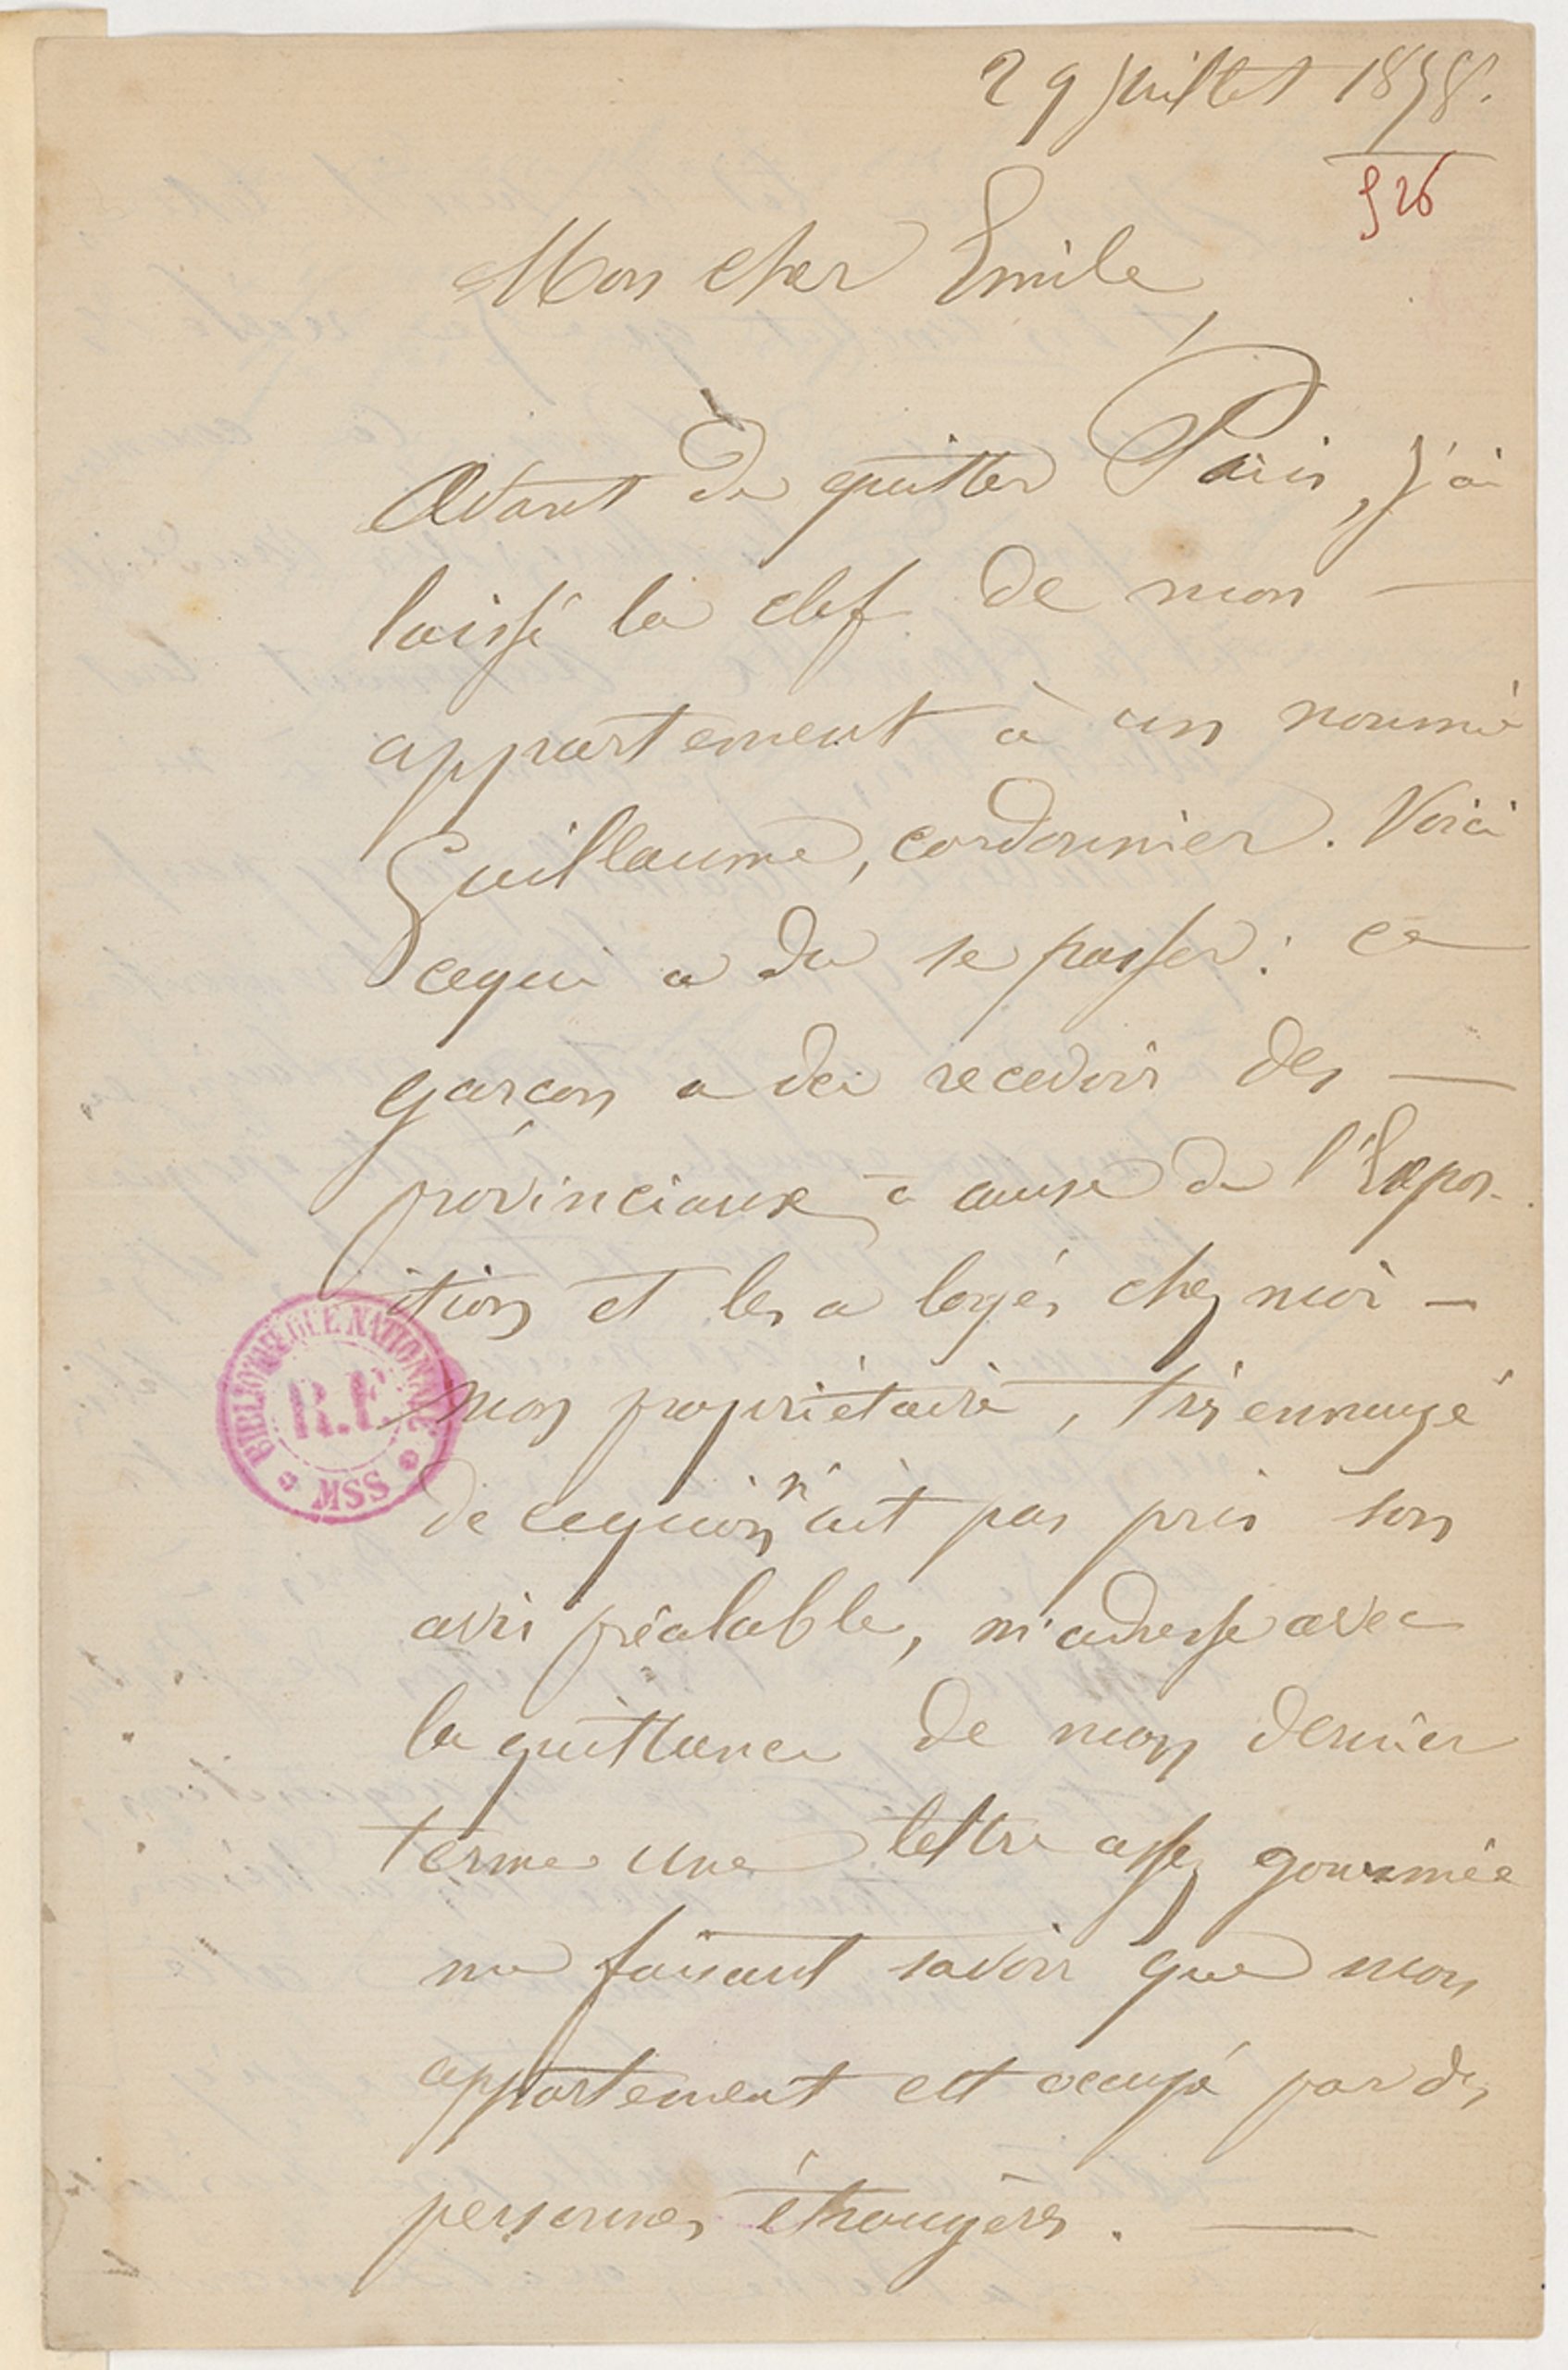 29 juillet 1878.
526
Mon cher Emile,
Avant de quitter Paris, j'ai
laissé la clef de mon —
appartement à un nommé
Guillaume, cordonnier. Voici
cequi a du se passer: ce
garçon a du recevoir des —
provinciaux à cause de l'Expos-
ition et les a logés chez moi —
mon propriétaire, très ennuyé
de cequ'on n'ait pas pris son
avis préalable, m'adresse avec
la quittance de mon dernier
terme une lettre assez gourmée
me faisant savoir que mon
appartement est occupé par des
personnes étrangères. —
BIBLIOTHÈQUE NATIONALE
R.F.
MSS